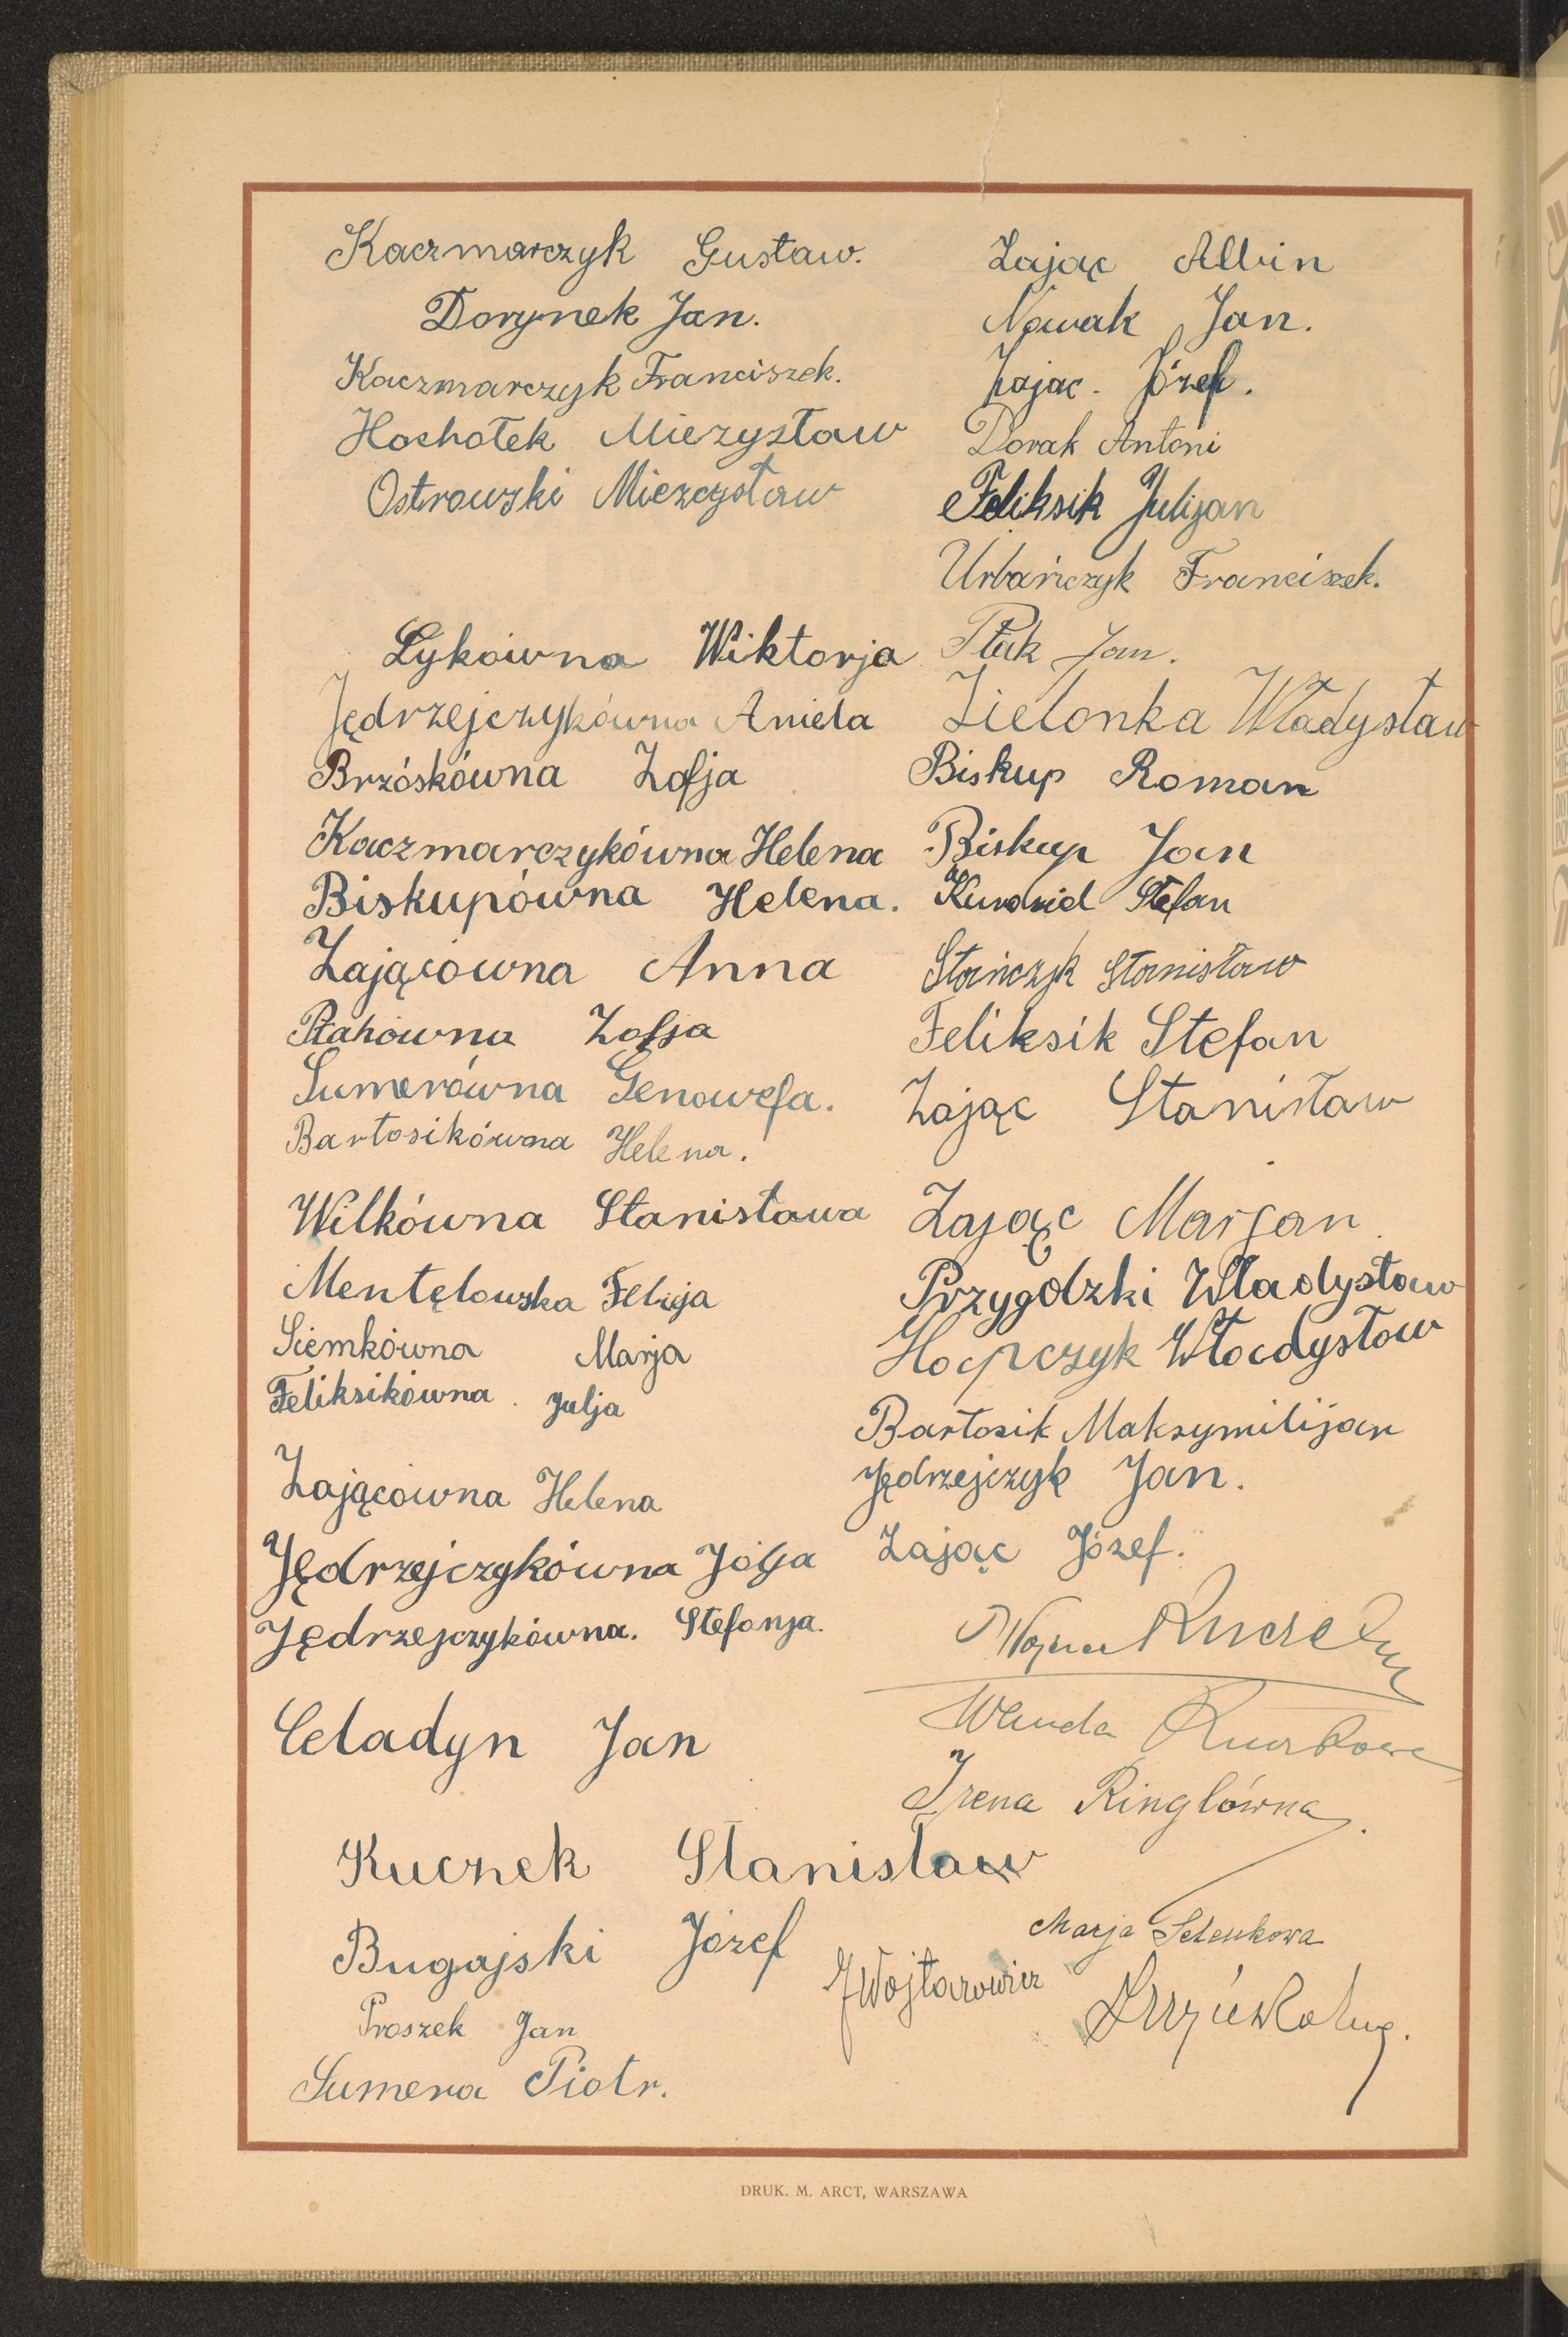 Kaczmarczyk Gustaw.
Dorynek Jan.
Kaczmarczyk Franciszek.
Hochołek Mieczysław
Ostrowski Mieczysław
Łykówna Wiktorja
Jędrzejczykówna Aniela
Brzóskówna Zofja
Kaczmarczykówna Helena
Biskupówna Helena.
Zającówna Anna
Ptakówna Zofja
Sumerówna Genowefa.
Bartosikówna Helena.
Wilkówna Stanisława
Mentęlowska Felicja
Siemkówna Marja
Feliksikówna Julja
Zającówna Helena
Jędrzejczykówna Jólja
Jędrzejczykówna. Stefanja.
Celadyn Jan
Kucnek Stanisław
Bugajski Józef
Proszek Jan
Sumera Piotr.
Zając Albin
Nowak Jan.
Zając. Józef.
Dorak Antoni
Feliksik Julijan
Urbańczyk Franciszek.
Ptak Jan.
Zielonka Władysław
Biskup Roman
Biskup Jan
Stefan
Stańczyk Stanisław
Feliksik Stefan
Zając Stanisław
Zając Marjan
Przygodzki Władysław
Hopczyk Włodysłow
Bartosik Maksymilijan
Jędrzejczyk Jan.
Zając Józef.
Wanda
Irena Ringlówna.
Marja
JWojtarowicz
DRUK. M. ARCT, WARSZAWA